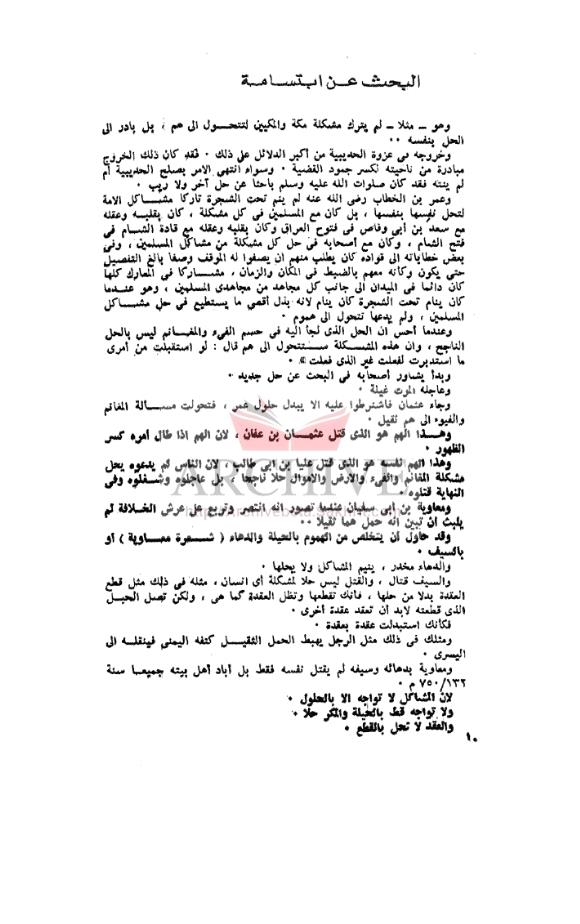 البحث عن ابتسامة
وهو ــ مثلا ــ لم يترك مشكلة مكة والمكيين لتتحول الى هم ، بل بادر الى
الحل بنفسه ٠٠
وخروجه فى غزوة الحديبية من أكبر الدلائل على ذلك ٠ فقد كان ذلك الخروج
مبادرة من ناحيته لكسر جمود القضية ٠ وسواء انتهى الامر بصلح الحديبية أم
لم ينته فقد كان صلوات الله عليه وسلم باحثا عن حل آخر ولا ريب ٠
وعمر بن الخطاب رضى الله عنه لم ينم تحت الشجرة تاركا مشاكل الامة
لتحل نفسها بنفسها ، بل كان مع المسلمين فى كل مشكلة ، كان بقلبه وعقله
مع سعد بن أبى وقاص فى فتوح العراق وكان بقلبه وعقله مع قادة الشام فى
فتح الشام ، وكان مع أصحابه فى حل كل مشكلة من مشاكل المسلمين ، وفى
بعض خطاباته الى قواده كان يطلب منهم ان يصفوا له الموقف وصفا بالغ التفصيل
حتى يكون وكأنه معهم بالضبط فى المكان والزمان ، مشاركا فى المعارك كلها
كان دائما فى الميدان الى جانب كل مجاهد من مجاهدى المسلمين ، وهو عندما
كان ينام تحت الشجرة كان ينام لانه بذل أقصى ما يستطيع فى حل مشاكل
المسلمين ، ولم يدعها تتحول الى هموم ٠
وعندما أحس ان الحل الذى لجأ اليه فى حسم الفىء والمغانم ليس بالحل
الناجح ، وان هذه المشكلة ستتحول الى هم قال : لو استقبلت من أمرى
ما استدبرت لفعلت غير الذى فعلت » ٠
وبدأ يشاور أصحابه فى البحث عن حل جديد ٠
وعاجله الموت غيلة ٠
وجاء عثمان فاشترطوا عليه الا يبدل حلول عمر ، فتحولت مسألة المغانم
والفيوء الى هم ثقيل ٠
وهذا الهم هو الذى قتل عثمان بن عفان ، لان الهم اذا طال أمره كسر
الظهور ٠
وهذا الهم نفسه هو الذى قتل عليا بن ابى طالب ، لان الناس لم يدعوه يحل
مشكلة المغانم والفىء والارض والاموال حلا ناجحا ، بل عاجلوه وشغلوه وفى
النهاية قتلوه ٠
ARCHIVE
ومعاوية بن ابى سفيان عندما تصور انه انتصر وتربع على عرش الخلافة لم
يلبث ان تبين انه حمل هما ثقيلا ٠٠
وقد حاول أن يتخلص من الهموم بالحيلة والدهاء ( شعرة معاوية ) أو
بالسيف ٠
والدهاء مخدر ، ينيم المشاكل ولا يحلها ٠
والسيف قتال ، والقتل ليس حلا لمشكلة أى انسان ، مثله فى ذلك مثل قطع
العقدة بدلا من حلها ، فانك تقطعها وتظل العقدة كما هى ، ولكى تصل الحبل
الذى قطعته لابد أن تعقد عقدة أخرى ٠
فكأنك استبدلت عقدة بعقدة ٠
ومثلك فى ذلك مثل الرجل يهبط الحمل الثقيل كتفه اليمنى فينقله الى
اليسرى ٠
ومعاوية بدهائه وسيفه لم يقتل نفسه فقط بل أباد أهل بيته جميعا سنة
١٣٢/٧٥٠ م ٠
لان المشاكل لا تواجه الا بالحلول ٠
ولا تواجه قط بالحيلة والمكر حلا ٠
والعقد لا تحل بالقطع ٠
١٠